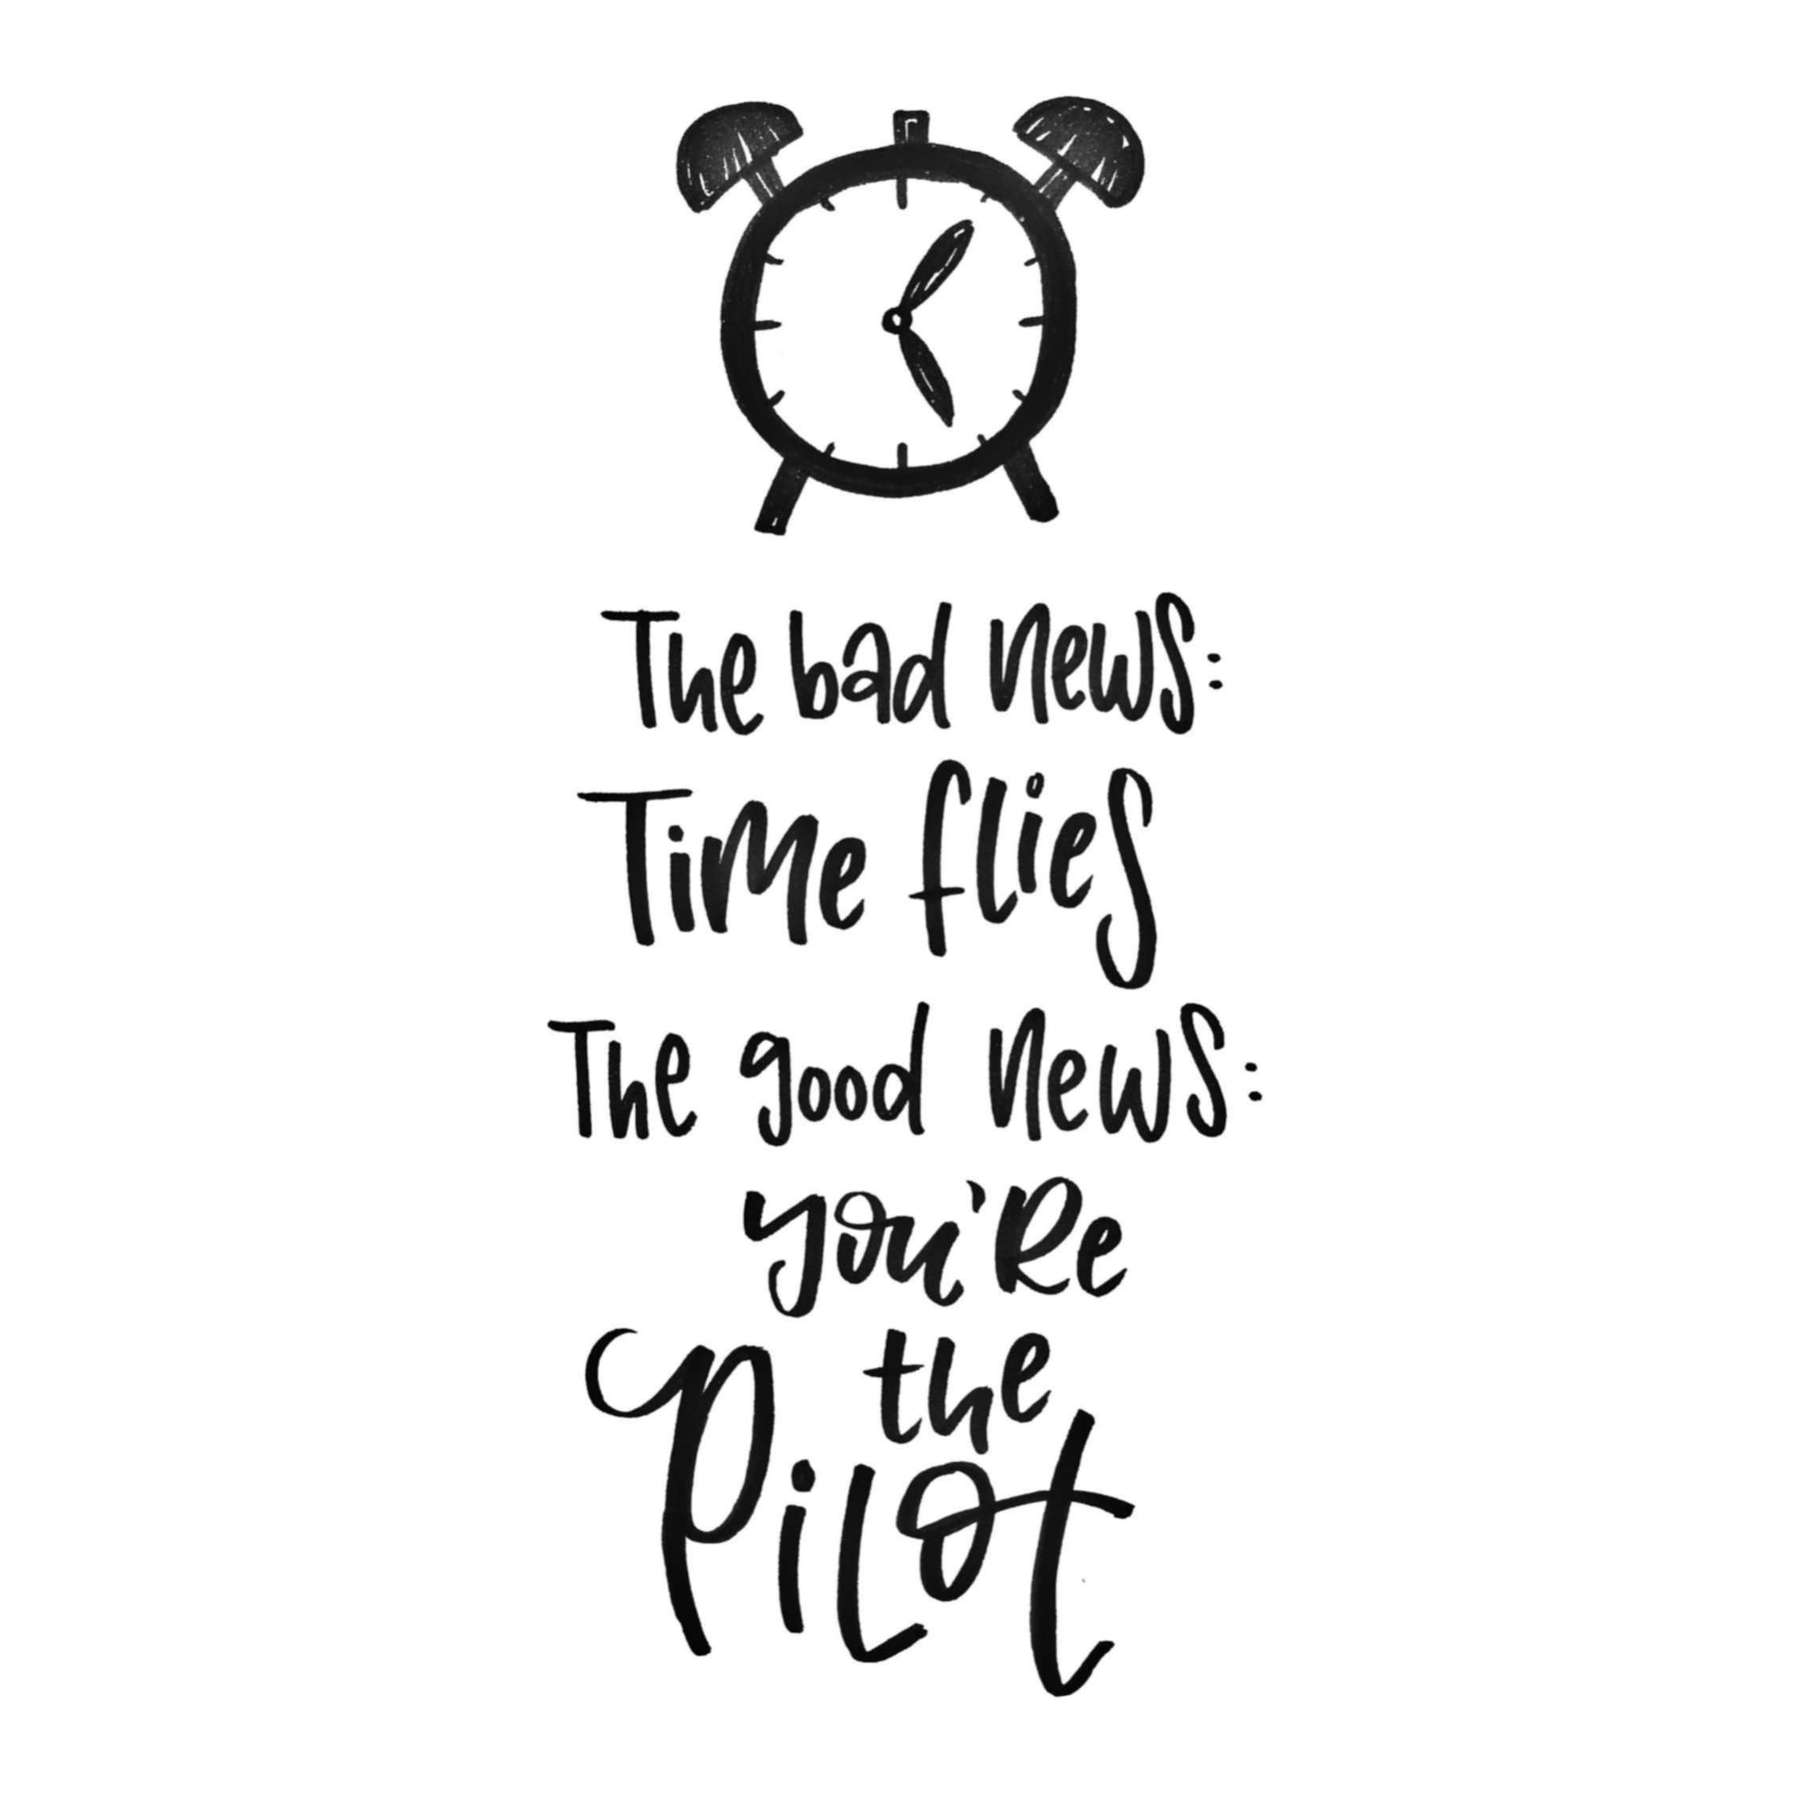 The bad news:
Time flies
The good news:
you'Re
the
Pilot